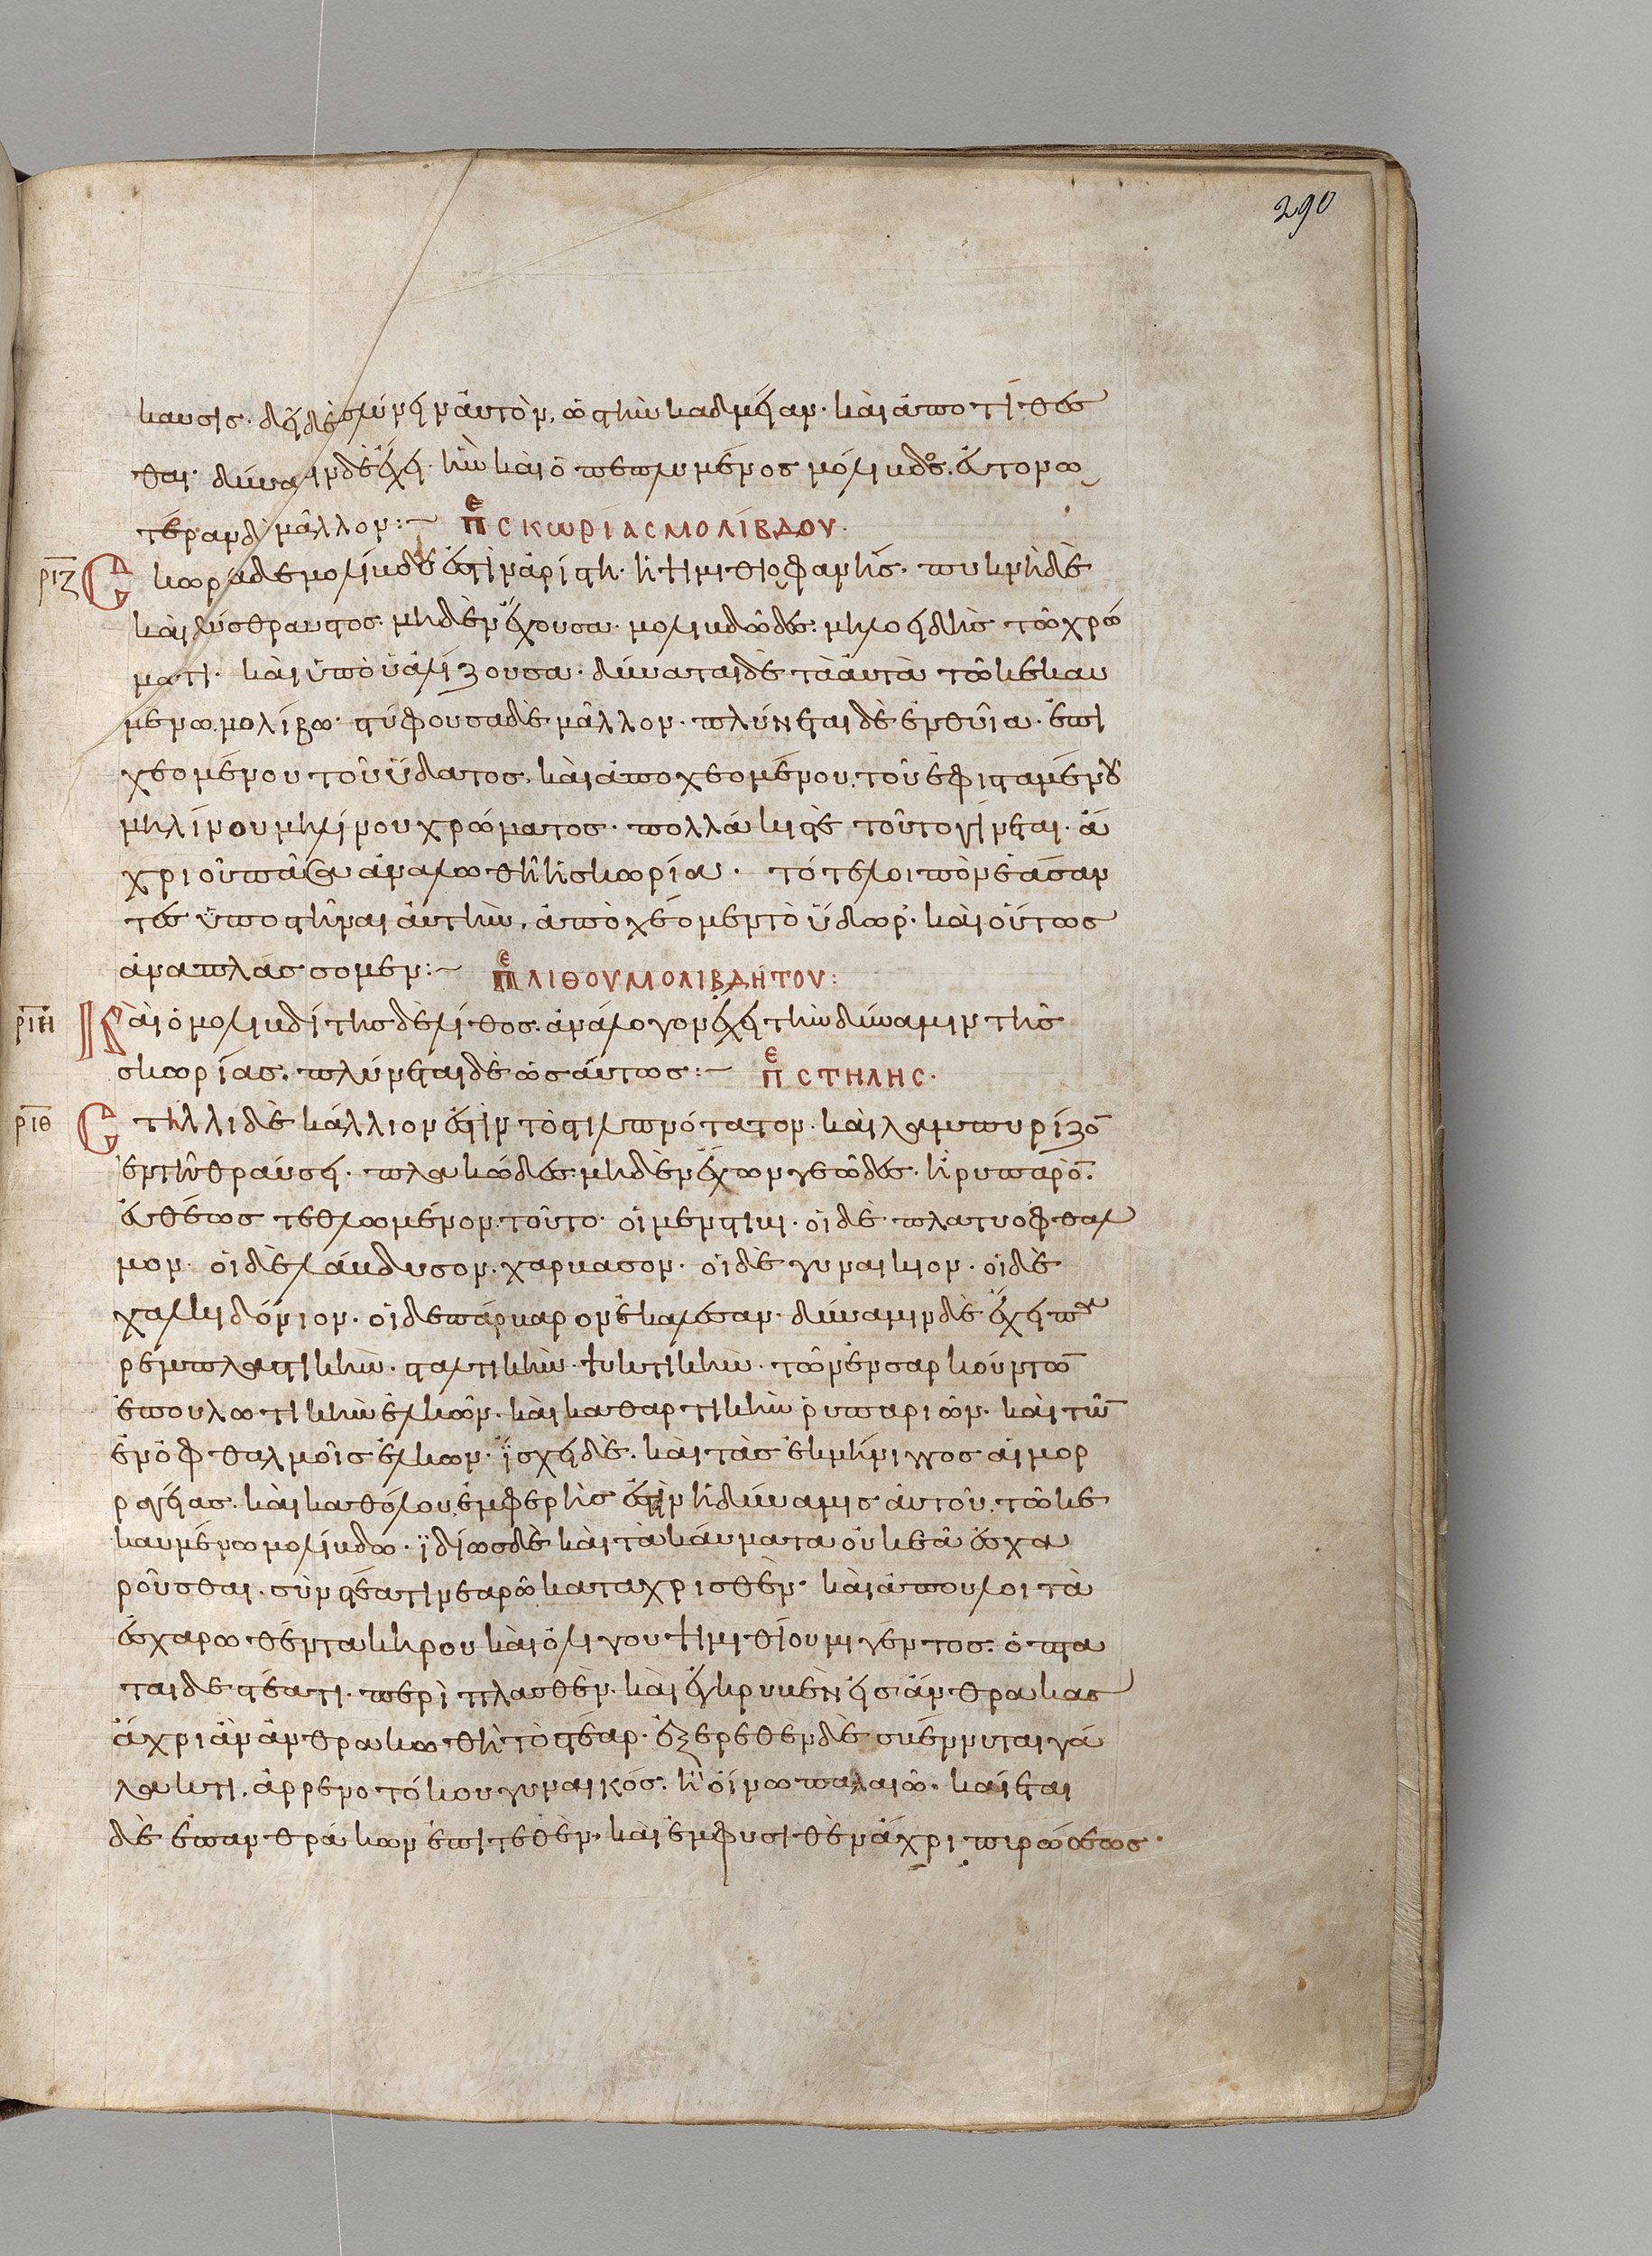 290
καυσις· δεῖ δὲ πλύνειν ἀυτὸν, ὡς τὴν καδμείαν· καὶ ἀποτίθεσ
θαι· δύναμιν δὲ ἔχει· ἣν καὶ ὁ πεπλυμένος μόλιβδος. ἐυτονω
τέραν δὲ μᾶλλον:~ πε σκωρίας μολίβδου·
ριζ Σκωρία δὲ μολίβδου ἐστὶν ἀρίστη· ἡ ψιμιθιοφανής· πυκνὴ δὲ
καὶ δύσθραυστος· μηδὲν ἔχουσα· μολιβδῶδες· μηλοειδὴς τῶ χρώ
ματι· καὶ ὑπὸ ὑαλίζουσα· δύναται δὲ τὰ ἀυτὰ τῶ κεκαυ
μένω μολίβω· στύφουσα δὲ μᾶλλον· πλύνεται δὲ ἐν θυΐα· ἐπι
χεομένου τοῦ ὕδατος, καὶ ἀποχεομένου, τοῦ ἐφισταμένου
μηλίνου μηλίνου χρώματος· πολλάκις τὲ τοῦτο γίνεται· ἄ
χρι οὗ πᾶσα ἀναλωθῆ ἡ σκωρία· τότε λοιπὸν ἐάσαν
τες ὑποστῆναι ἀυτὴν, ἀποχέομεν τὸ ὕδωρ· καὶ οὕτως
ἀναπλάσσομεν:~ πε λίθου μολιβδήτου:
ριη Καὶ ὁ μολιβδίτης δὲ λίθος· ἀνάλογον ἔχει τὴν δύναμιν τῆς
σκωρίας. πλύνεται δὲ ὡσάυτως:~ πε στήλης·
ριθ Στήλλι δὲ κάλλιον ἐστὶν τὸ στιλπνότατον· καὶ λαμπυρίζον
ἐν τῆ θράυσει· πλακώδες· μηδὲν ἔχων γεῶδες· ἢ ρυπαρὸν.
ἐυθέως τε θλώμενον. τοῦτο· οἱ μὲν στίβι· οἱ δὲ πλατυοφθαλ
μον· οἱ δὲ λάβδυσον. χαρβασον· οἱ δὲ γυναικιον· οἱ δὲ
χαλκιδόνιον· οἱ δὲ πάρβαρον ἐκάλεσαν· δύναμιν δὲ ἔχει πα
ρεμπλαστικὴν· σταλτικὴν· ψυκτικὴν· τῶν ἐνσαρκούντων
ἐπουλωτικὴν ἑλκῶν· καὶ καθαρτικὴν ῥυπαριῶν· καὶ τῶν
ἐν ὀφθαλμοῖς ἕλκων· ἴσχει δὲ. καὶ τὰς ἐκ μήνιγγος αἱμορ
ραγείας. καὶ καθόλου ἐμφερὴς ἐστὶν ἡ δύναμις ἀυτοῦ, τῶ κε
καυμένω μολίβδω· ἰδίως δὲ καὶ τὰ κάυματα οὐκ ἐᾶ ἐσχα
ροῦσθαι. σὺν στέατι νεαρῶ καταχρισθὲν· καὶ ἀπουλοῖ τὰ
ἐσχαρωθέντα κηρου καὶ ὀλίγου ψιμιθίου μιγέντος: ὀπτα
ται δὲ στέατι· περὶ πλασθὲν. καὶ ἐγκρυβὲν εἰς ἄνθρακας
ἄχρι ἂν ἀνθρακωθῆ τὸ στέαρ· ἐξερεθὲν δὲ σβέννυται γά
λακτι, ἀρρενοτόκου γυναικός. ἢ ὀίνω παλαιῶ. καίεται
δὲ ἐπανθράκων ἐπιτεθὲν· καὶ ἐμφυσιθὲν ἄχρι πιρώσεως·